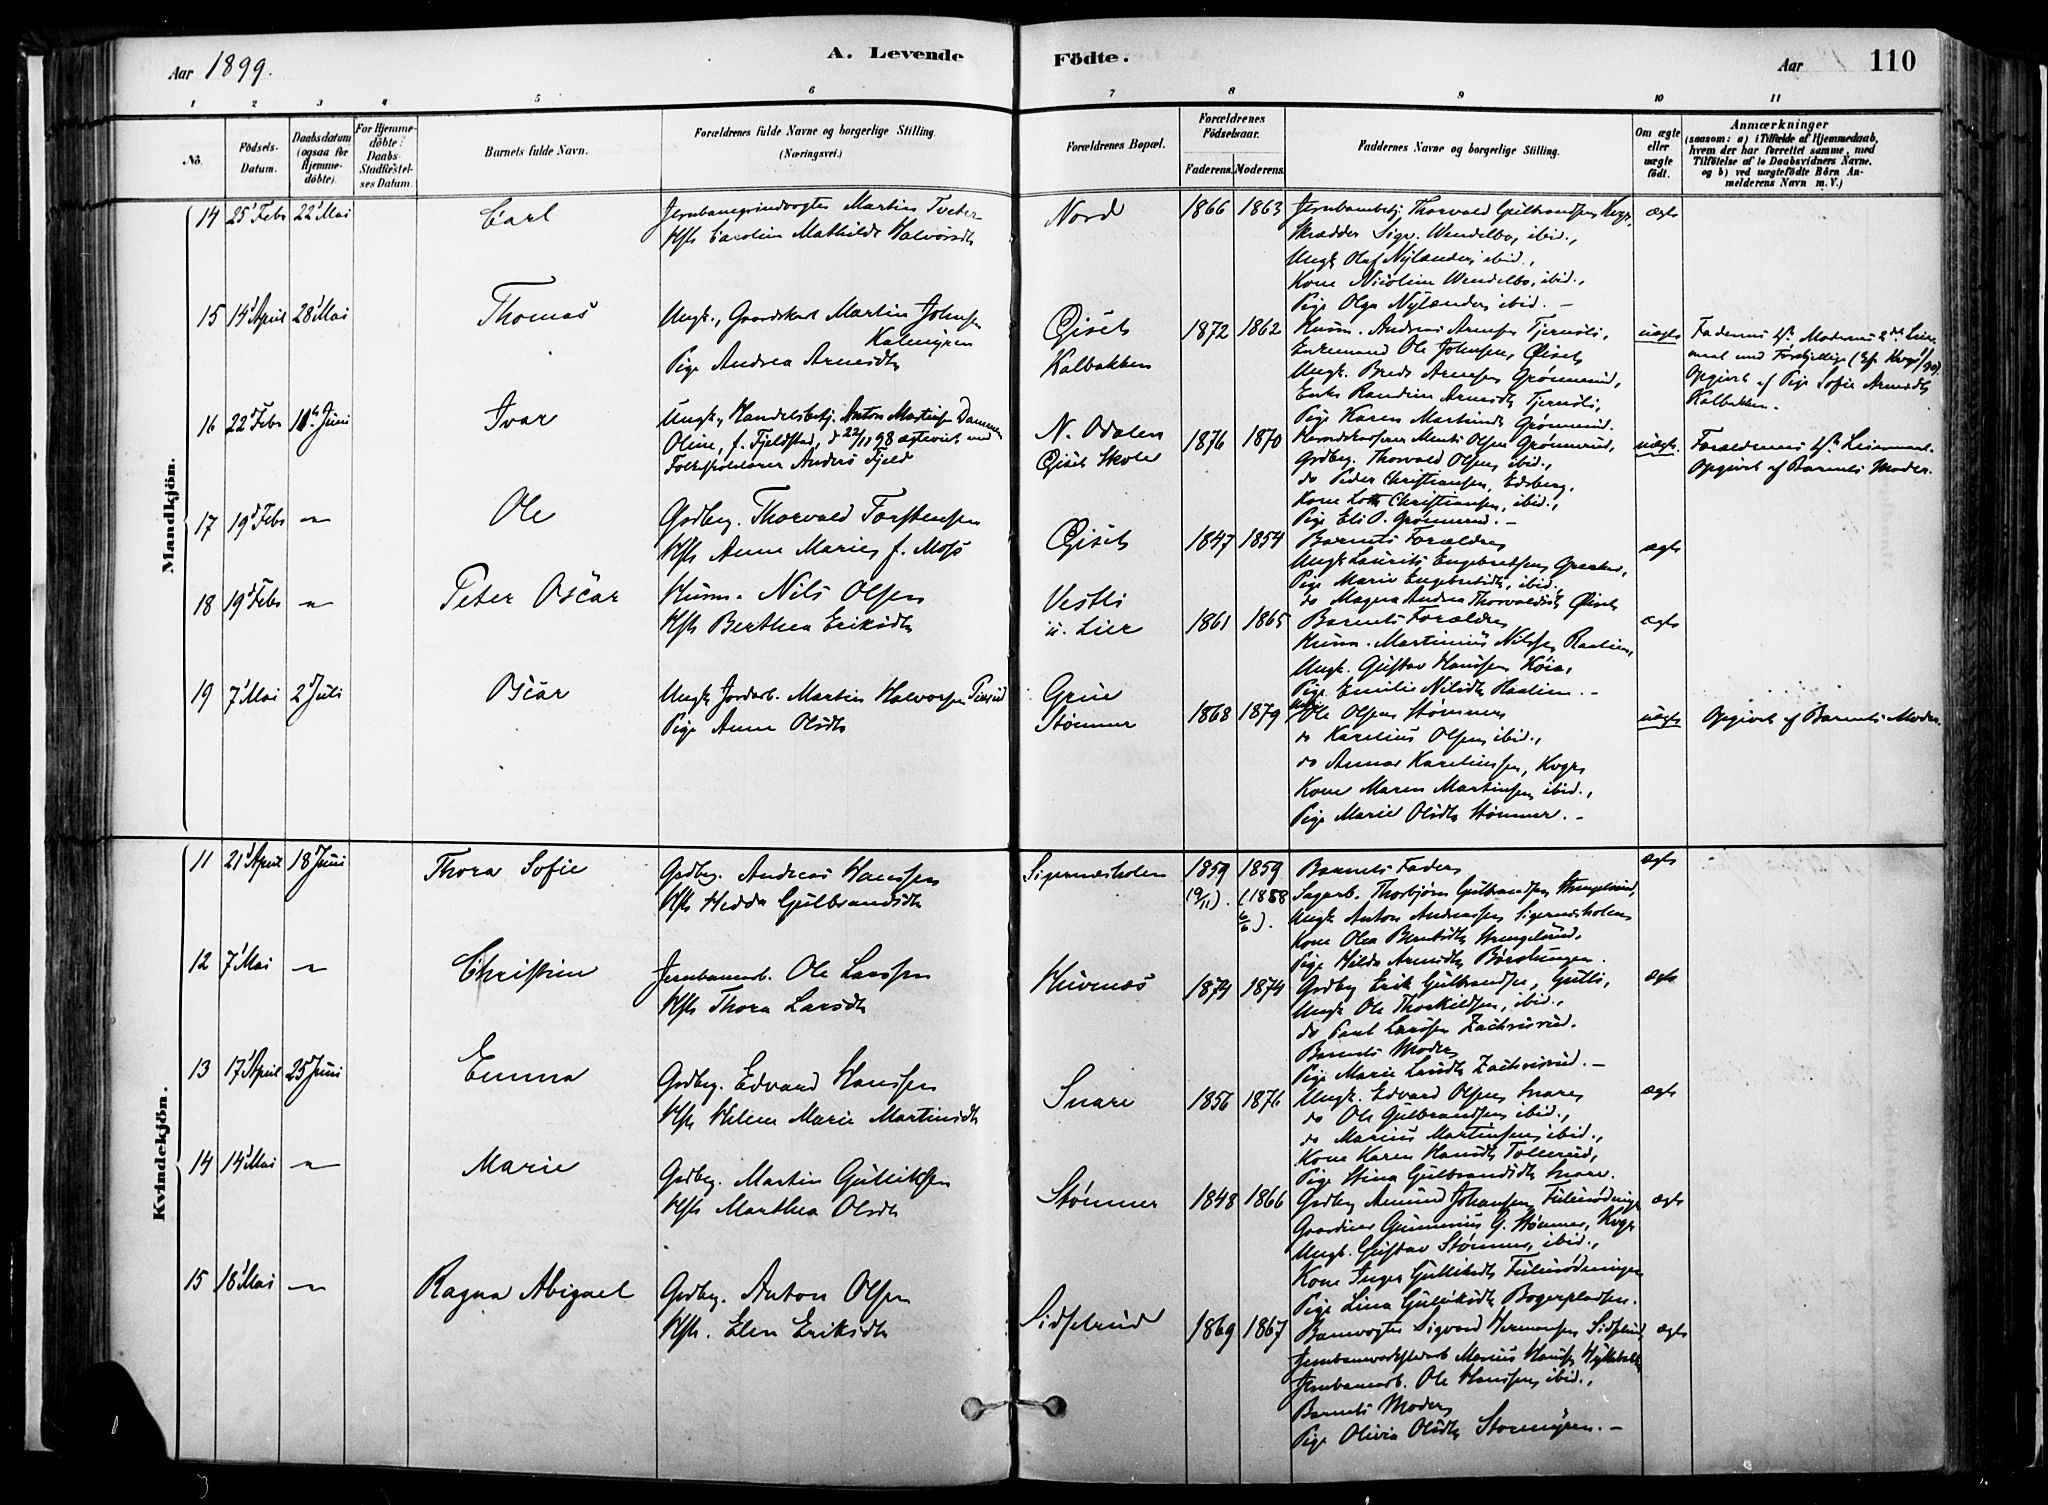 Aar 1899.
A. Levende
Födte.
Aar
110
1 2 3 4 5 6 7 8 9 10 11
No.
Födsels-
Datum.
Daabsdatum
(ogsaa for
Hjemme-
döbte).
For Hjemme-
döbte:
Daabs-
Stadfæstel-
ses Datum.
Barnets fulde Navn.
Forældrenes fulde Navne og borgerlige Stilling.
(Næringsvei.)
Forældrenes Bopæl.
Forældrenes
Födselsaar.
Faderens. Moderens.
Faddernes Navne og borgerlige Stilling.
Om ægte
eller
uægte
födt.
Anmærkninger
(saasom: a) i Tilfælde af Hjemmedaab,
hvem der har forrettet samme, med
Tilföielse af to Daabsvidners Navne,
og b) ved uægtefödte Börn An-
melderens Navn m. V.)
Mandkjön.
14 25 Febr 22 Mai Carl
Jernbanegrindvogter Martin Tveter
Hst. Caroline Mathilde Halvorsdt
Nord 1866 1863
Jernbanebetj. Thorvald Gulbrandsen Kvgr,
Skrædder Sigv. Wendelbo, ibid.,
Ungk Olaf Nylænder, ibid.,
Kone Nicoline Wendelbo, ibid.,
Pige Olga Nylænder, ibid. —
ægte
15 14 April 28 Mai Thomas
Ungk., Gaardskar Martin Johnsen
Kalmyren
Pige Andrea Arnesdt
Øiset
Kalbakken
1872 1862
Husm. Andreas Arnesen Tjernsli,
Enkemand Ole Johnsen, Øiset,
Ungk. Brede Arnesen Grønnerud,
Enke Randine Arnesdt Tjernsli,
Pige Karen Martinsdt Grønnerud.
uægte
Faderens 1ste Moderens 2det Leier-
maal med Forskjellige
Opgivet af Pige Sofie Arnesdt
Kalbakken.
16 22 Febr 11 Juni Ivar
Ungk., Handelsbetj. Anton Martinsen Dammen
Oline, f. Fjeldstad, d 22/11 98 ægteviet med
Folkeskolelærer Anders Fjeld
N. Odalen
Øiset Skole
1876 1870
Gaardskarsøn Ments Olsen Grønnerud,
Grdbrg. Thorvald Olsen, ibid.,
do Peder Christiansen, Edsberg,
Kone Lotte Christiansen, ibid.,
Pige Eli O. Grønnerud. —
uægte.
Forældrenes 1ste Leiermaal.
Opgivet af Barnets Moder.
17 19 Febr — Ole
Grdbrg. Thorvald Torstensen
Hst. Anne Marie, f. Moss
Øiset 1847 1854
Barnets Forældre,
Ungk Laurits Engebretsen, Greaker,
Pige Marie Engebretsdt, ibid.,
do Magna Andrea Thorvaldsdt, Øiset
ægte
18 19 Febr — Peter Oscar
Husm. Nils Olsen
Hst. Berthea Eriksdt
Vestli
u. Lier
1861 1865
Barnets Forældre,
Husm. Martinius Nilssen Raalien,
Ungk. Gustav Hanssen Køia,
Pige Emilie Nilsdt Raalien. —
ægte
19 7 Mai 2 Juli Oscar
Ungk Jordarb. Martin Halvorsen Tiurud
Pige Anna Olsdt
Grue
Stømner
1868 1879
Ole Olsen Stømner,
do Karelius Olsen, ibid.,
do Annar Kareliussen, Kvgr,
Kone Maren Martinsen, ibid.,
Pige Marie Olsdt Stømner. —
uægte
Opgivet af Barnets Moder.
Kvindekjön.
11 21 April 18 Juni Thora Sofie
Grdbrg. Andreas Hanssen
Hst. Hedda Gulbrandsdt
Sigernæsholen
1859 (9/11). 1859 (1858 6/6).
Barnets Fader,
Sagarb. Thorbjørn Gulbrandsen Strengelsrud,
Ungk Anton Andreassen Sigernesholen,
Kone Olea Berntsdt Strengelsrud,
Pige Hilda Arnesdt Børstungen.
ægte
12 7 Mai — Christine
Jernbanearb. Ole Larssen
Hst. Thora Larsdt
Huvenæs 1874 1874
Grdbrg Erik Gulbrandsen, Gutli,
Ungk Ole Thorkildsen, ibid.,
do Paul Larssen Zachrisrud.
Barnets Moder,
Pige Marie Larsdt Zachrisrud. —
ægte
13 17 April 25 Juni Emma
Grdbrg. Edvard Hanssen
Hst. Helene Marie Martinsdt
Snare 1856 1876
Ungk. Edvard Olsen Snare,
do Ole Gulbrandsen, ibid.,
do Marius Martinsen, ibid.,
Kone Karen Hansdt Tollerud,
Pige Stina Gulbrandsdt Snare.
ægte
14 14 Mai — Marie
Grdbrg. Martin Gulliksen
Hst. Marthea Olsdt
Stømner 1848 1866
Grdbrg Amund Johansen, Fulurødningen,
Gaardeier Gunnerius G. Stømner, Kvgr
Ungk. Gustav Stømner, ibid.,
Kone Inger Gulliksdt Fulurødningen
Pige Lina Gulliksdt Bogerpladsen.
ægte
15 18 Mai — Ragna Abigael
Grdbrg. Anton Olsen
Hst. Elen Eriksdt
Sidselrud 1869 1867
Banevogter Sigvard Hermansen Sidselrud,
Jernbaneværkstedarb Marius Hanssen
Jernbanearb. Ole Hanssen, ibid.,
Barnets Moder,
Pige Olivia Olsdt Stormyren. —
ægte